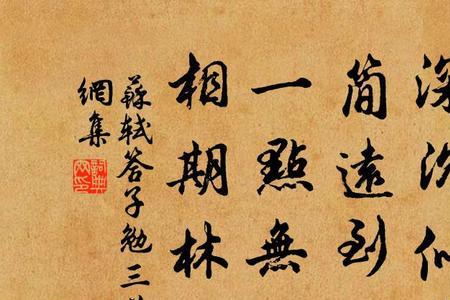 深沈似
簡遠到
一點無
相期林
蘇軾答子勉三
網集